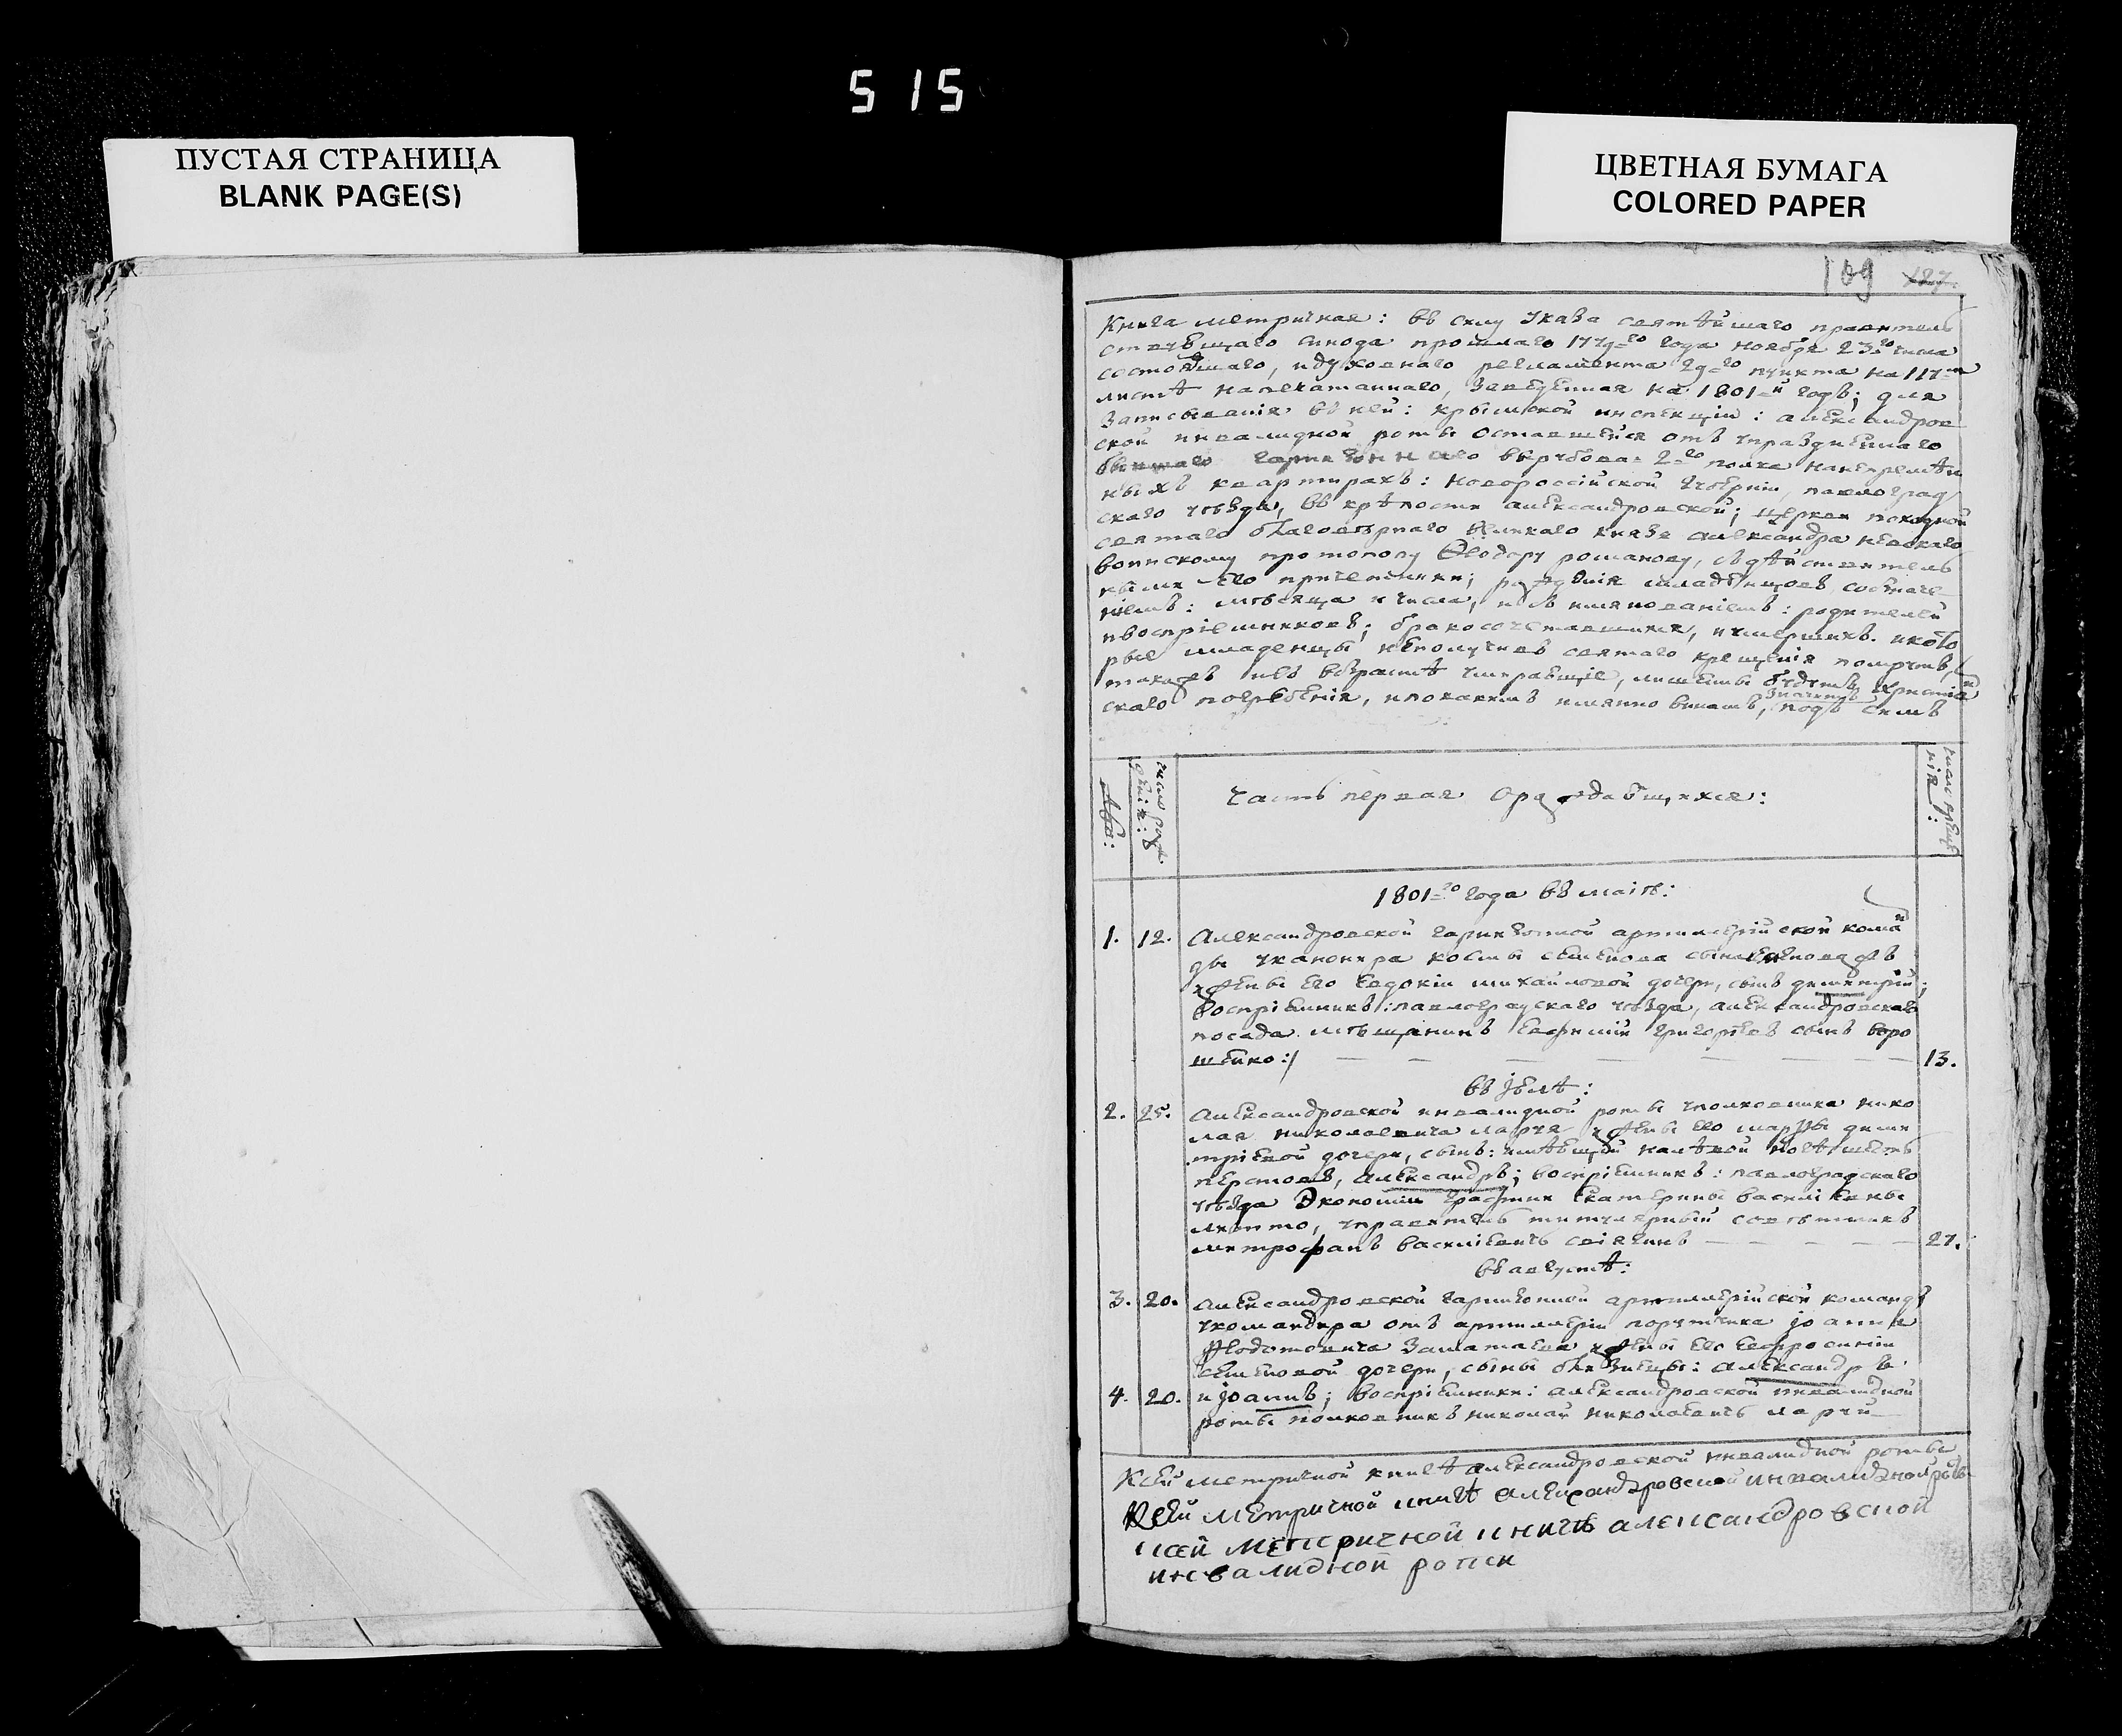 5 15
ПУСТАЯ СТРАНИЦА
BLANK PAGE(S)
ЦВЕТНАЯ БУМАГА
COLORED PAPER
109 127.
Книга метричная: въ силу указа святѣйшаго правитель
ствующаго синода прошлаго 1779-го года ноября 23-го числа
состоявшаго, и духовнаго регламента 29-го пункта на 117-м
листѣ напечатаннаго, заведенная на 1801-й годъ; для
записыванія въ ней: крымской инспекции: александров
ской инвалидной роты оставшейся отъ упраздненнаго
бывшаго гарнизоннаго 2-го полка на непремѣн
ныхъ квартирахъ: новороссійской губерніи, павлоград
скаго уѣзда, въ крѣпости александровской; церкви походной
святаго благовѣрнаго великаго князя александра невскаго
воинскому протопопу Ѳеодору романову, съ дѣйствитель
ными его причетники; рожденія младѣнцовъ съ означе
ніемъ: мѣсяца и числа, и съ имянованіемъ: родителей
и воспріемниковъ; бракосочетавшихся, и умершихъ. и кото
рые младенцы не получивъ святаго крещенія помрутъ,
такожъ и въ возрастѣ умиравшіе, лишены будутъ христіан
скаго погребенія, и по какимъ имянно винамъ, значитъ подъ симъ
число рож
денія:
число креще
нія:
Часть первая о раждающихся:
1801-го года въ маіѣ:
1. 12. Александровской гарнизонной артиллерійской коман
ды у канонира космы семенова сына
жены его евдокіи михайловой дочери, сынъ димитрій;
воспріемникъ: павлоградскаго уѣзда, александровскаго
посада мѣщанинъ евфимій григорьевъ сынъ воро
шейко:/ 13.
въ іюлѣ:
2. 25. Александровской инвалидной роты у полковника нико
лая николаевича ларчя жены его марѳы дими
тріевой дочери, сынъ: имѣющій на лѣвой ногѣ шесть
перстовъ, александръ; воспріемникъ: павлоградскаго
уѣзда экономіи графини екатерины василіевны
литто, управитель титулярный совѣтникъ
митрофанъ василіевичъ свіягинъ 27.
въ августѣ:
3. 20. Александровской гарнизонной артиллерійской команды
у командира отъ артиллеріи порутчика іоанна
Ѳедотовича жены его евфросиніи
семеновой дочери, сыны близнецы: александръ
4. 20. и іоаннъ; воспріемники: александровской инвалидной
роты полковникъ николай николаевичъ ларчій
К сей метричной книгѣ александровской инвалидной роты
К сей метричной книгѣ александровской инвалидной роты
к сей метричной книгѣ александровской
инвалидной роты